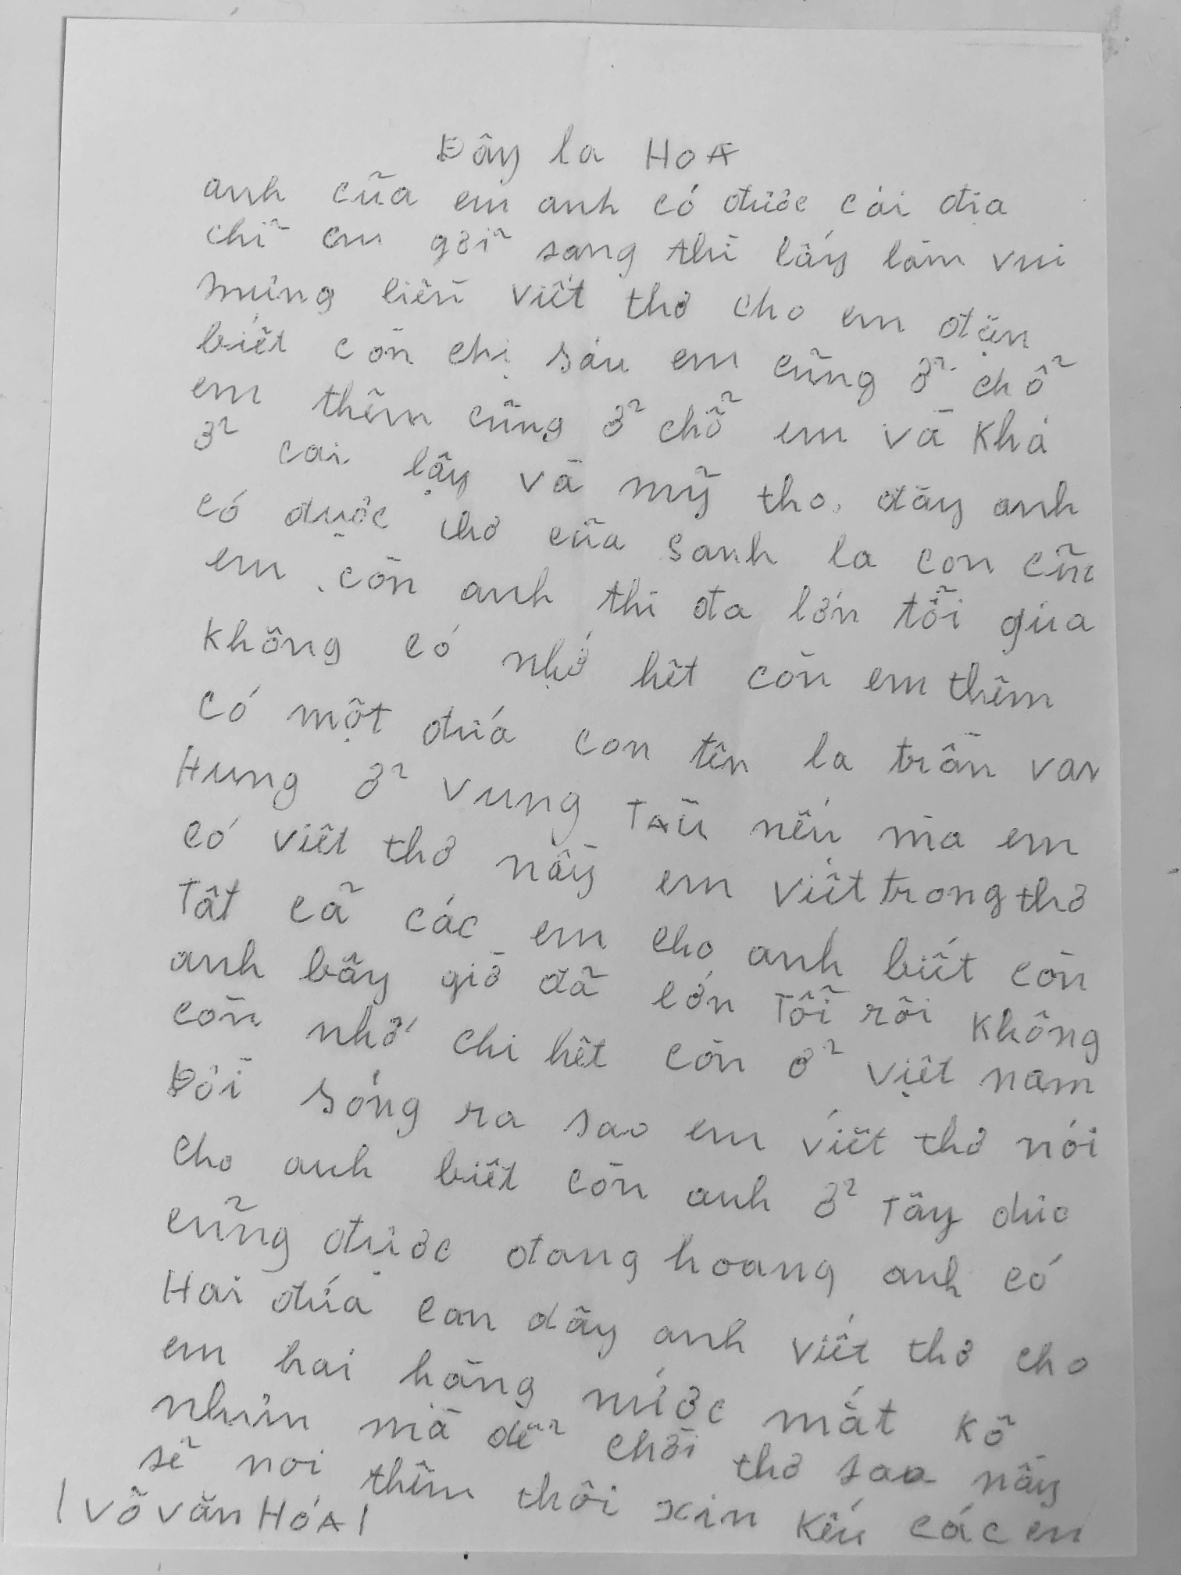 Đây la HOA
anh cũa em anh có được cái địa
chỉ em gởi sang thì lấy làm vui
mừng liền viết thơ cho em đặn
biết còn chị sáu em cũng ở chỗ
em thêm cũng ở chỗ em và Khá
ở cai lậy và mỹ tho. đây anh
có được thơ cũa sanh la con cũa
em còn anh thì đa lớn tỗi qúa
không có nhớ hết còn em thêm
có một đứa con tên la trần van
Hung ở vung TÀU nếu mà em
có viết thơ nầy em viết trong thơ
Tất cã các em cho anh biết còn
anh bây giờ đã lớn Tỗi rồi không
còn nhớ chi hết còn ở việt nam
Đời sống ra sao em viết thơ nói
cho anh biết còn anh ở Tây dức
cũng được đang hoang anh có
Hai đứa con dây anh viết thơ cho
em hai hàng nước mắt kỗ
nhưn mà dễ chời thơ sao nầy
sẽ noi thêm thôi xin kến các em
/ VÕ VĂN HÓA /